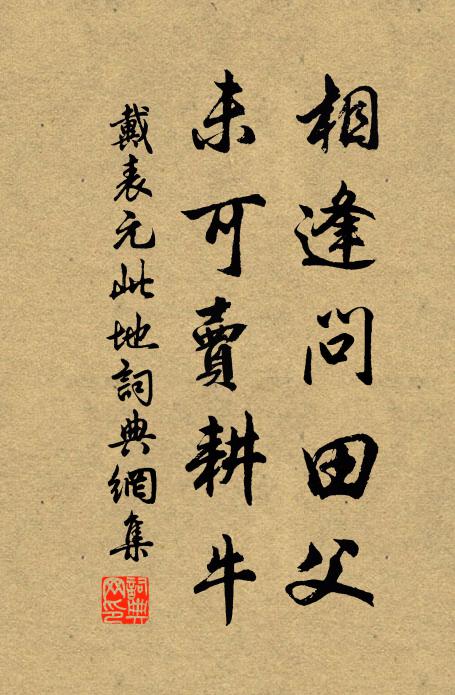 相逢問田父
未可賣耕牛
戴表元此地詞典網集
詞典網印